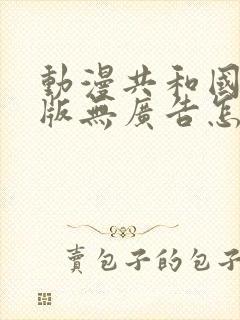 動漫共和國
版無廣告怎
賣包子的包子